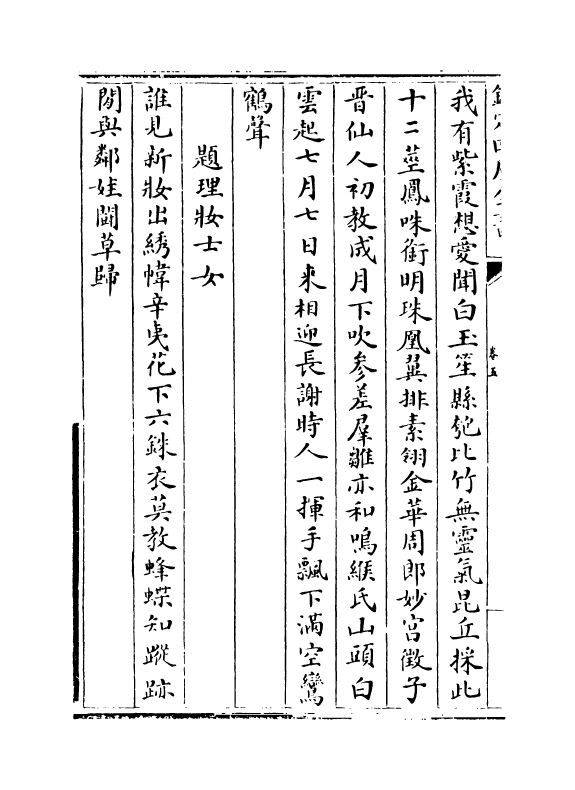 卷五
我有紫霞想愛聞白玉笙縣匏比竹無靈氣昆丘採此
十二莖鳳咮銜明珠凰翼排素翎金華周郎妙宫徵子
晋仙人初教成月下吹參差羣雛亦和鳴緱氏山頭白
雲起七月七日來相迎長謝時人一揮手飄下滿空鸞
鶴聲
題理妝士女
誰見新妝出綉幃辛夷花下六銖衣莫教蜂蝶知蹤跡
閒與鄰娃鬭草歸